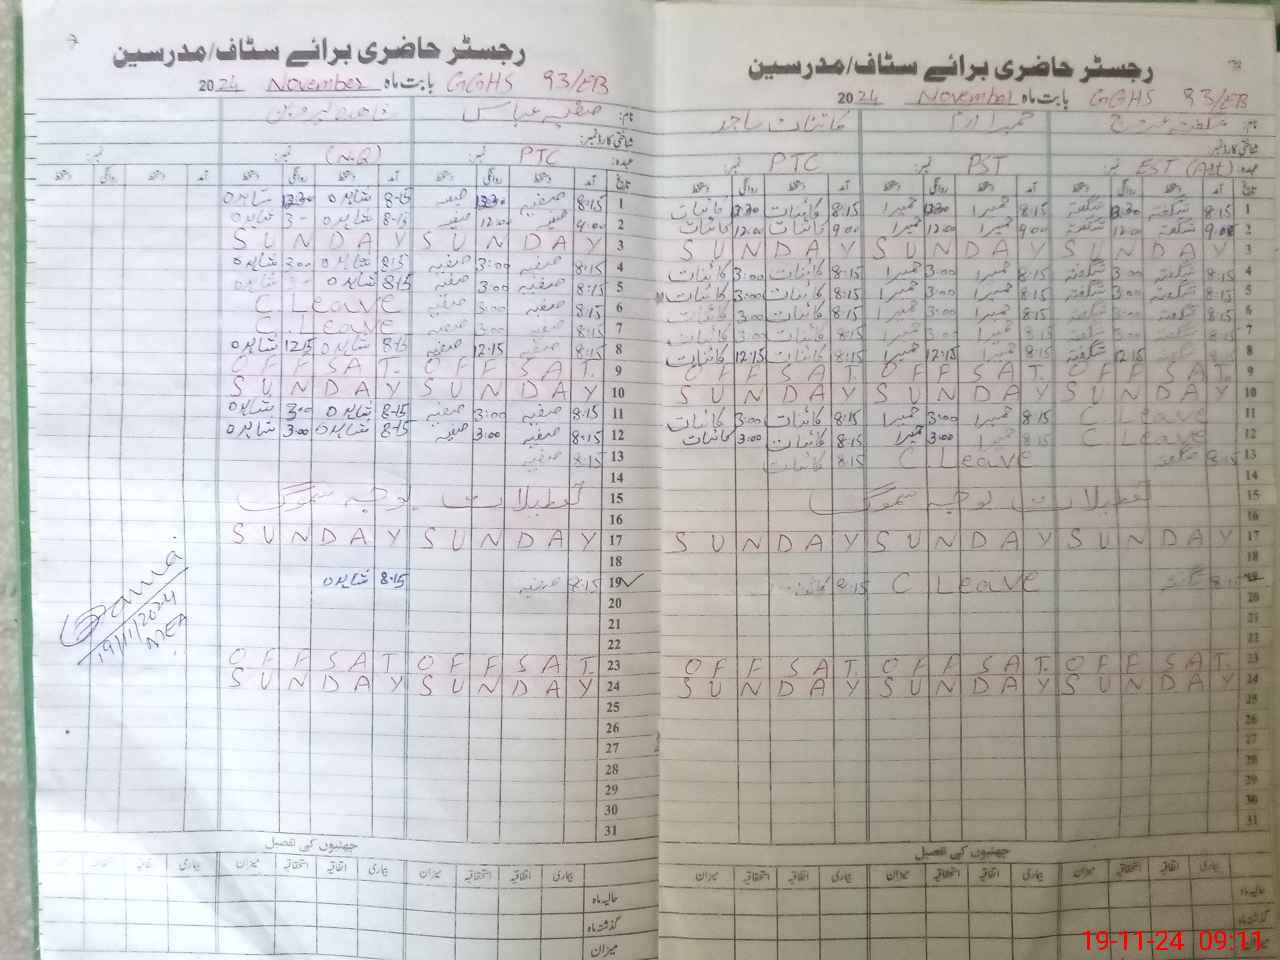 رجسٹر حاضری برائے سٹاف/مدرسین
2024 November بابت ماہ GGHS 93/EB
نام: صفیہ عباس
شناختی کارڈ نمبر:
عہدہ: PTC نمبر: (N.Q) نمبر: نمبر:
تاریخ آمد دستخط روانگی دستخط آمد دستخط روانگی دستخط آمد دستخط روانگی دستخط
1 8:15 صفیہ 12:30 صفیہ 8-15 شاہدہ 12:30 شاہدہ
2 9:00 صفیہ 12:00 صفیہ 8-15 شاہدہ شاہدہ
3 S U N D A Y S U N D A Y
4 8:15 صفیہ 3:00 صفیہ 8:15 شاہدہ 3:00 شاہدہ
5 8:15 صفیہ 3:00 صفیہ 8-15 شاہدہ شاہدہ
6 8:15 صفیہ 3:00 صفیہ C Leave
7 8:15 صفیہ 3:00 صفیہ C. Leave
8 8:15 صفیہ 12:15 صفیہ 8-15 شاہدہ 12:15 شاہدہ
9 O F F S A T. O F F S A T.
10 S U N D A Y S U N D A Y
11 8:15 صفیہ 3:00 صفیہ 8-15 شاہدہ 3:00 شاہدہ
12 8:15 صفیہ 3:00 صفیہ 8-15 شاہدہ 3:00 شاہدہ
13 8:15 صفیہ
14
15 تعطیلات بوجہ سموگ
16
17 S U N D A Y S U N D A Y
18
19 8:15 صفیہ 8-15 شاہدہ
20
21
22
23 O F F S A T. O F F S A T
24 S U N D A Y S U N D A Y
25
26
27
28
29
30
31
19/11/2024
MEA
چھٹیوں کی تفصیل
بیماری اتفاقیہ استحقاقیہ میزان بیماری اتفاقیہ استحقاقیہ میزان بیماری
حالیہ ماہ
گذشتہ ماہ
میزان
رجسٹر حاضری برائے سٹاف/مدرسین
2024 November بابت ماہ GGHS 93/EB
نام: حمیرا ارم کائنات ساجد
شناختی کارڈ نمبر:
عہدہ: EST (Art) نمبر: PST نمبر: PTC نمبر:
تاریخ آمد دستخط روانگی دستخط آمد دستخط روانگی دستخط آمد دستخط روانگی دستخط
1 8:15 شگفتہ 12:30 شگفتہ 8:15 حمیرا 12:30 حمیرا 8:15 کائنات 12:30 کائنات
2 9:00 شگفتہ 12:00 شگفتہ 9:00 حمیرا 12:00 حمیرا 9:00 کائنات 12:00 کائنات
3 S U N D A Y S U N D A Y S U N D A Y
4 8:15 شگفتہ 3:00 شگفتہ 8:15 حمیرا 3:00 حمیرا 8:15 کائنات 3:00 کائنات
5 8:15 شگفتہ 3:00 شگفتہ 8:15 حمیرا 3:00 حمیرا 8:15 کائنات 3:00 کائنات
6 8:15 شگفتہ 3:00 شگفتہ 8:15 حمیرا 3:00 حمیرا 8:15 کائنات 3:00 کائنات
7 8:15 شگفتہ 3:00 شگفتہ 8:15 حمیرا 3:00 حمیرا 8:15 کائنات 3:00 کائنات
8 8:15 شگفتہ 12:15 شگفتہ 8:15 حمیرا 12:15 حمیرا 8:15 کائنات 12:15 کائنات
9 O F F S A T. O F F S A T. O F F S A T.
10 S U N D A Y S U N D A Y S U N D A Y
11 C Leave 8:15 حمیرا 3:00 حمیرا 8:15 کائنات 3:00 کائنات
12 C Leave 8:15 حمیرا 3:00 حمیرا 8:15 کائنات 3:00 کائنات
13 8:15 شگفتہ C Leave 8:15 کائنات
14
15 تعطیلات بوجہ سموگ
16
17 S U N D A Y S U N D A Y S U N D A Y
18
19 8:15 شگفتہ C Leave 8:15 کائنات
20
21
22
23 O F F S A T. O F F S A T. O F F S A T.
24 S U N D A Y S U N D A Y S U N D A Y
25
26
27
28
29
30
31
چھٹیوں کی تفصیل
بیماری اتفاقیہ استحقاقیہ میزان بیماری اتفاقیہ استحقاقیہ میزان بیماری اتفاقیہ استحقاقیہ میزان
حالیہ ماہ
گذشتہ ماہ
میزان
19-11-24 09:11